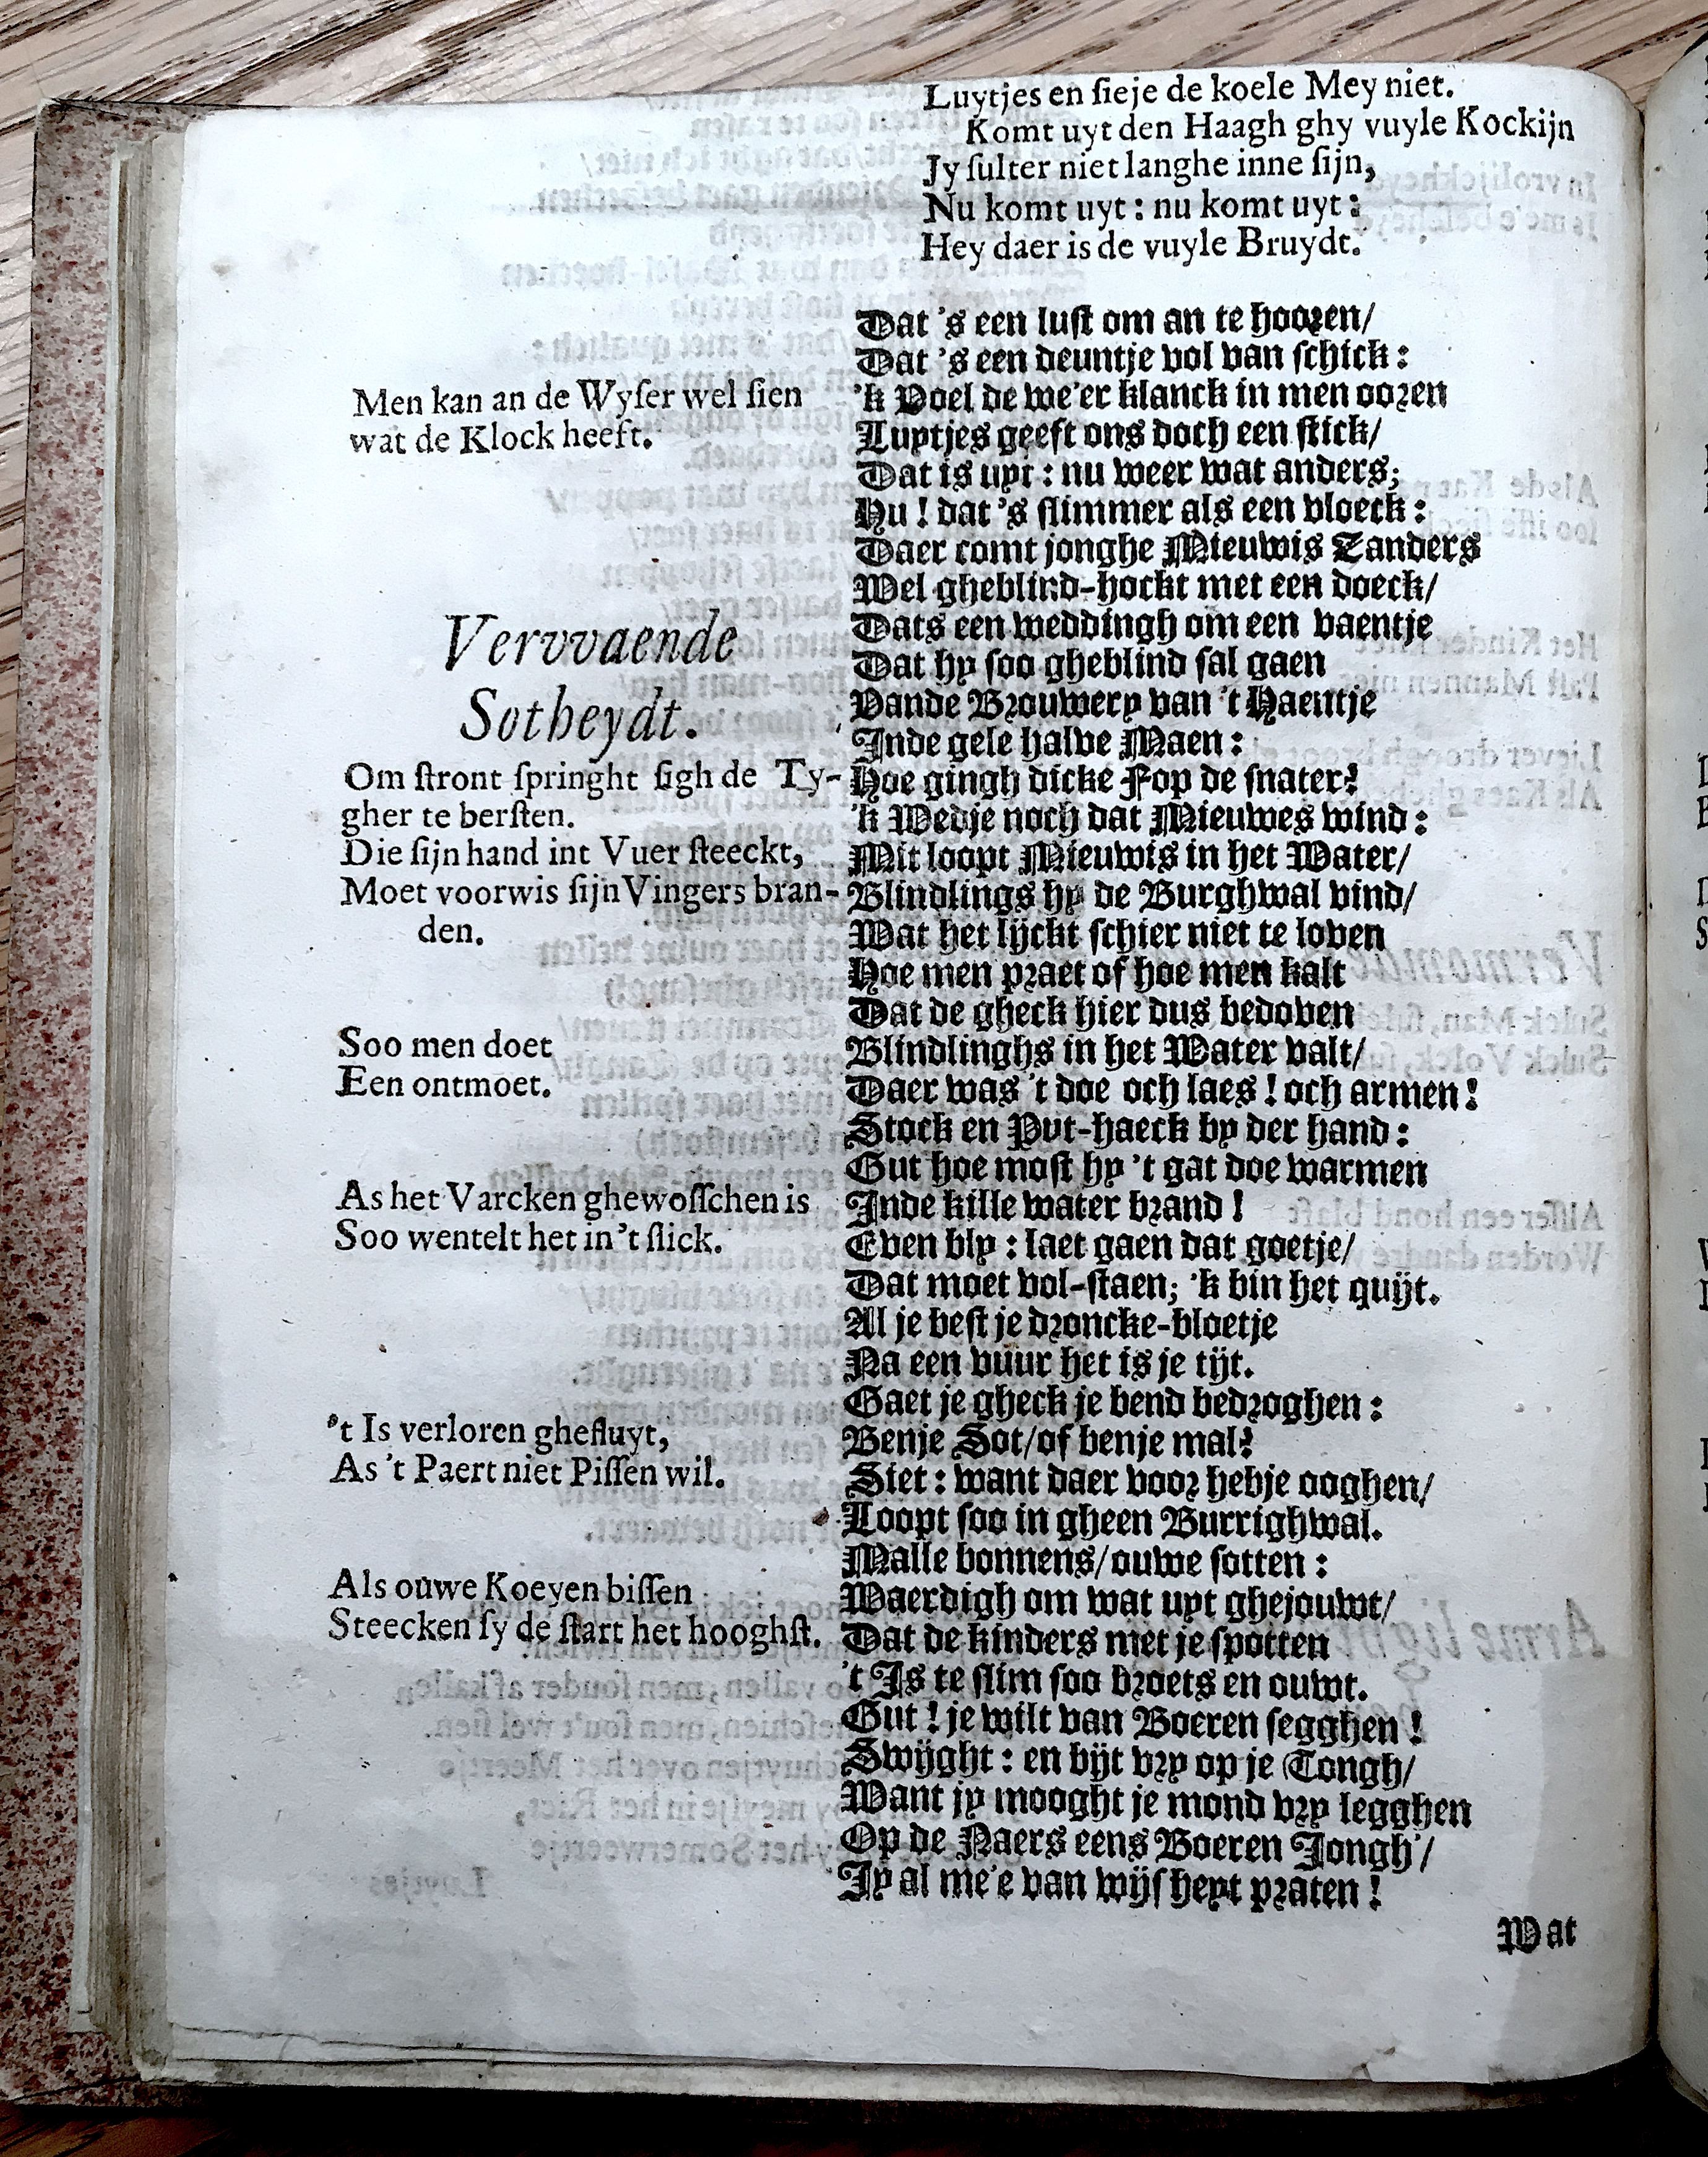 Luytjes en sieje de koele Mey niet.
Komt uyt den Haagh ghy vuyle Kockijn
Jy sulter niet langhe inne sijn,
Nu komt uyt : nu komt uyt :
Hey daer is de vuyle Bruydt.
Men kan an de Wyser wel sien
wat de Klock heeft.
Vervvaende
Sotheydt.
Om stront springht sigh de Ty-
gher te bersten.
Die sijn hand int Vuer steeckt,
Moet voorwis sijn Vingers bran-
den.
Soo men doet
Een ontmoet.
As het Varcken ghewosschen is
Soo wentelt het in 't slick.
't Is verloren ghefluyt,
As 't Paert niet Pissen wil.
Als ouwe Koeyen bissen
Steecken sy de start het hooghst.
Dat 's een lust om an te hooren/
Dat 's een deuntje vol van schick :
'k Voel de we'er klanck in men ooren
Luytjes geeft ons doch een stick/
Dat is uyt : nu weer wat anders;
Hu ! dat 's slimmer als een vloeck :
Daer comt jonghe Mieuwis Tanders
Wel gheblind-hockt met een doeck/
Dats een weddingh om een vaentje
Dat hy soo gheblind sal gaen
Vande Brouwery van 't Haentje
Inde gele halve Maen :
Hoe gingh dicke Fop de snater?
'k Wedje noch dat Mieuwes wind :
Mit loopt Mieuwis in het Water/
Blindlings hy de Burghwal vind/
Wat het lijckt schier niet te loven
Hoe men praet of hoe men kalt
Dat de gheck hier dus bedoven
Blindlinghs in het Water valt/
Daer was 't doe och laes ! och armen !
Stock en Put-haeck by der hand :
Gut hoe most hy 't gat doe warmen
Inde kille water brand !
Even bly : laet gaen dat goetje/
Dat moet vol-staen; 'k bin het quijt.
Al je best je droncke-bloetje
Na een vuur het is je tijt.
Gaet je gheck je bend bedroghen :
Benje Sot/of benje mal?
Siet : want daer voor hebje ooghen/
Loopt soo in gheen Burrighwal.
Malle bonnens/ouwe sotten :
Waerdigh om wat uyt ghejouwt/
Dat de kinders met je spotten
't Is te slim soo broets en ouwt.
Gut ! je wilt van Boeren segghen !
Swijght : en bijt vry op je Tongh/
Want jy mooght je mond vry legghen
Op de Naers eens Boeren Jongh'/
Jy al me'e van wijsheyt praten !
Wat